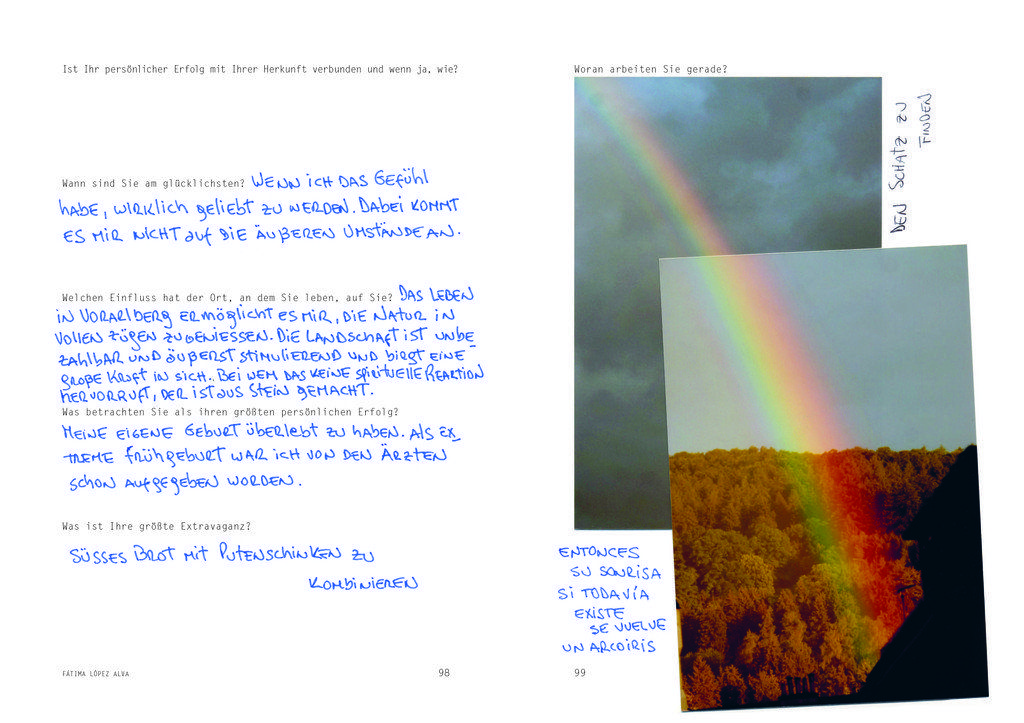 Ist Ihr persönlicher Erfolg mit Ihrer Herkunft verbunden und wenn ja, wie?
Wann sind Sie am glücklichsten? WENN ICH DAS GEFÜHL
HABE, WIRKLICH GELIEBT ZU WERDEN. DABEI KOMMT
ES MIR NICHT AUF DIE ÄUßEREN UMSTÄNDE AN.
Welchen Einfluss hat der Ort, an dem Sie leben, auf Sie? DAS LEBEN
IN VORARLBERG ERMÖGLICHT ES MIR, DIE NATUR IN
VOLLEN ZÜGEN ZU GENIESSEN. DIE LANDSCHAFT IST UNBE
ZAHLBAR UND ÄUßERST STIMULIEREND UND BIRGT EINE
GROßE KRAFT IN SICH. BEI WEM DAS KEINE SPIRITUELLE REAKTION
HERVORRUFT, DER IST AUS STEIN GEMACHT.
Was betrachten Sie als ihren größten persönlichen Erfolg?
MEINE EIGENE GEBURT ÜBERLEBT ZU HABEN. ALS EX_
TREME FRÜHGEBURT WAR ICH VON DEN ÄRZTEN
SCHON AUFGEGEBEN WORDEN.
Was ist Ihre größte Extravaganz?
SÜSSES BROT MIT PUTENSCHINKEN ZU
KOMBINIEREN
FÁTIMA LÓPEZ ALVA
98
Woran arbeiten Sie gerade?
DEN SCHATZ ZU
FINDEN
ENTONCES
SU SONRISA
SI TODAVÍA
EXISTE
SE VUELVE
UN ARCOIRIS
99